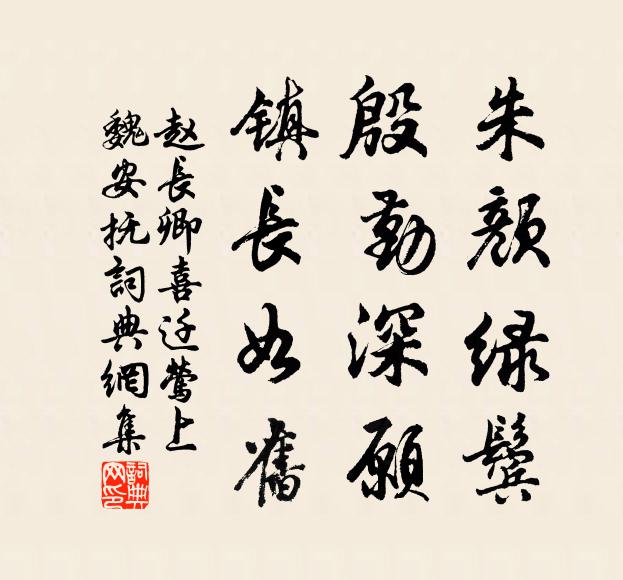 朱颜绿鬓
殷勤深愿
镇长如旧
赵长卿喜迁莺上
魏安抚词典网集
词典网印